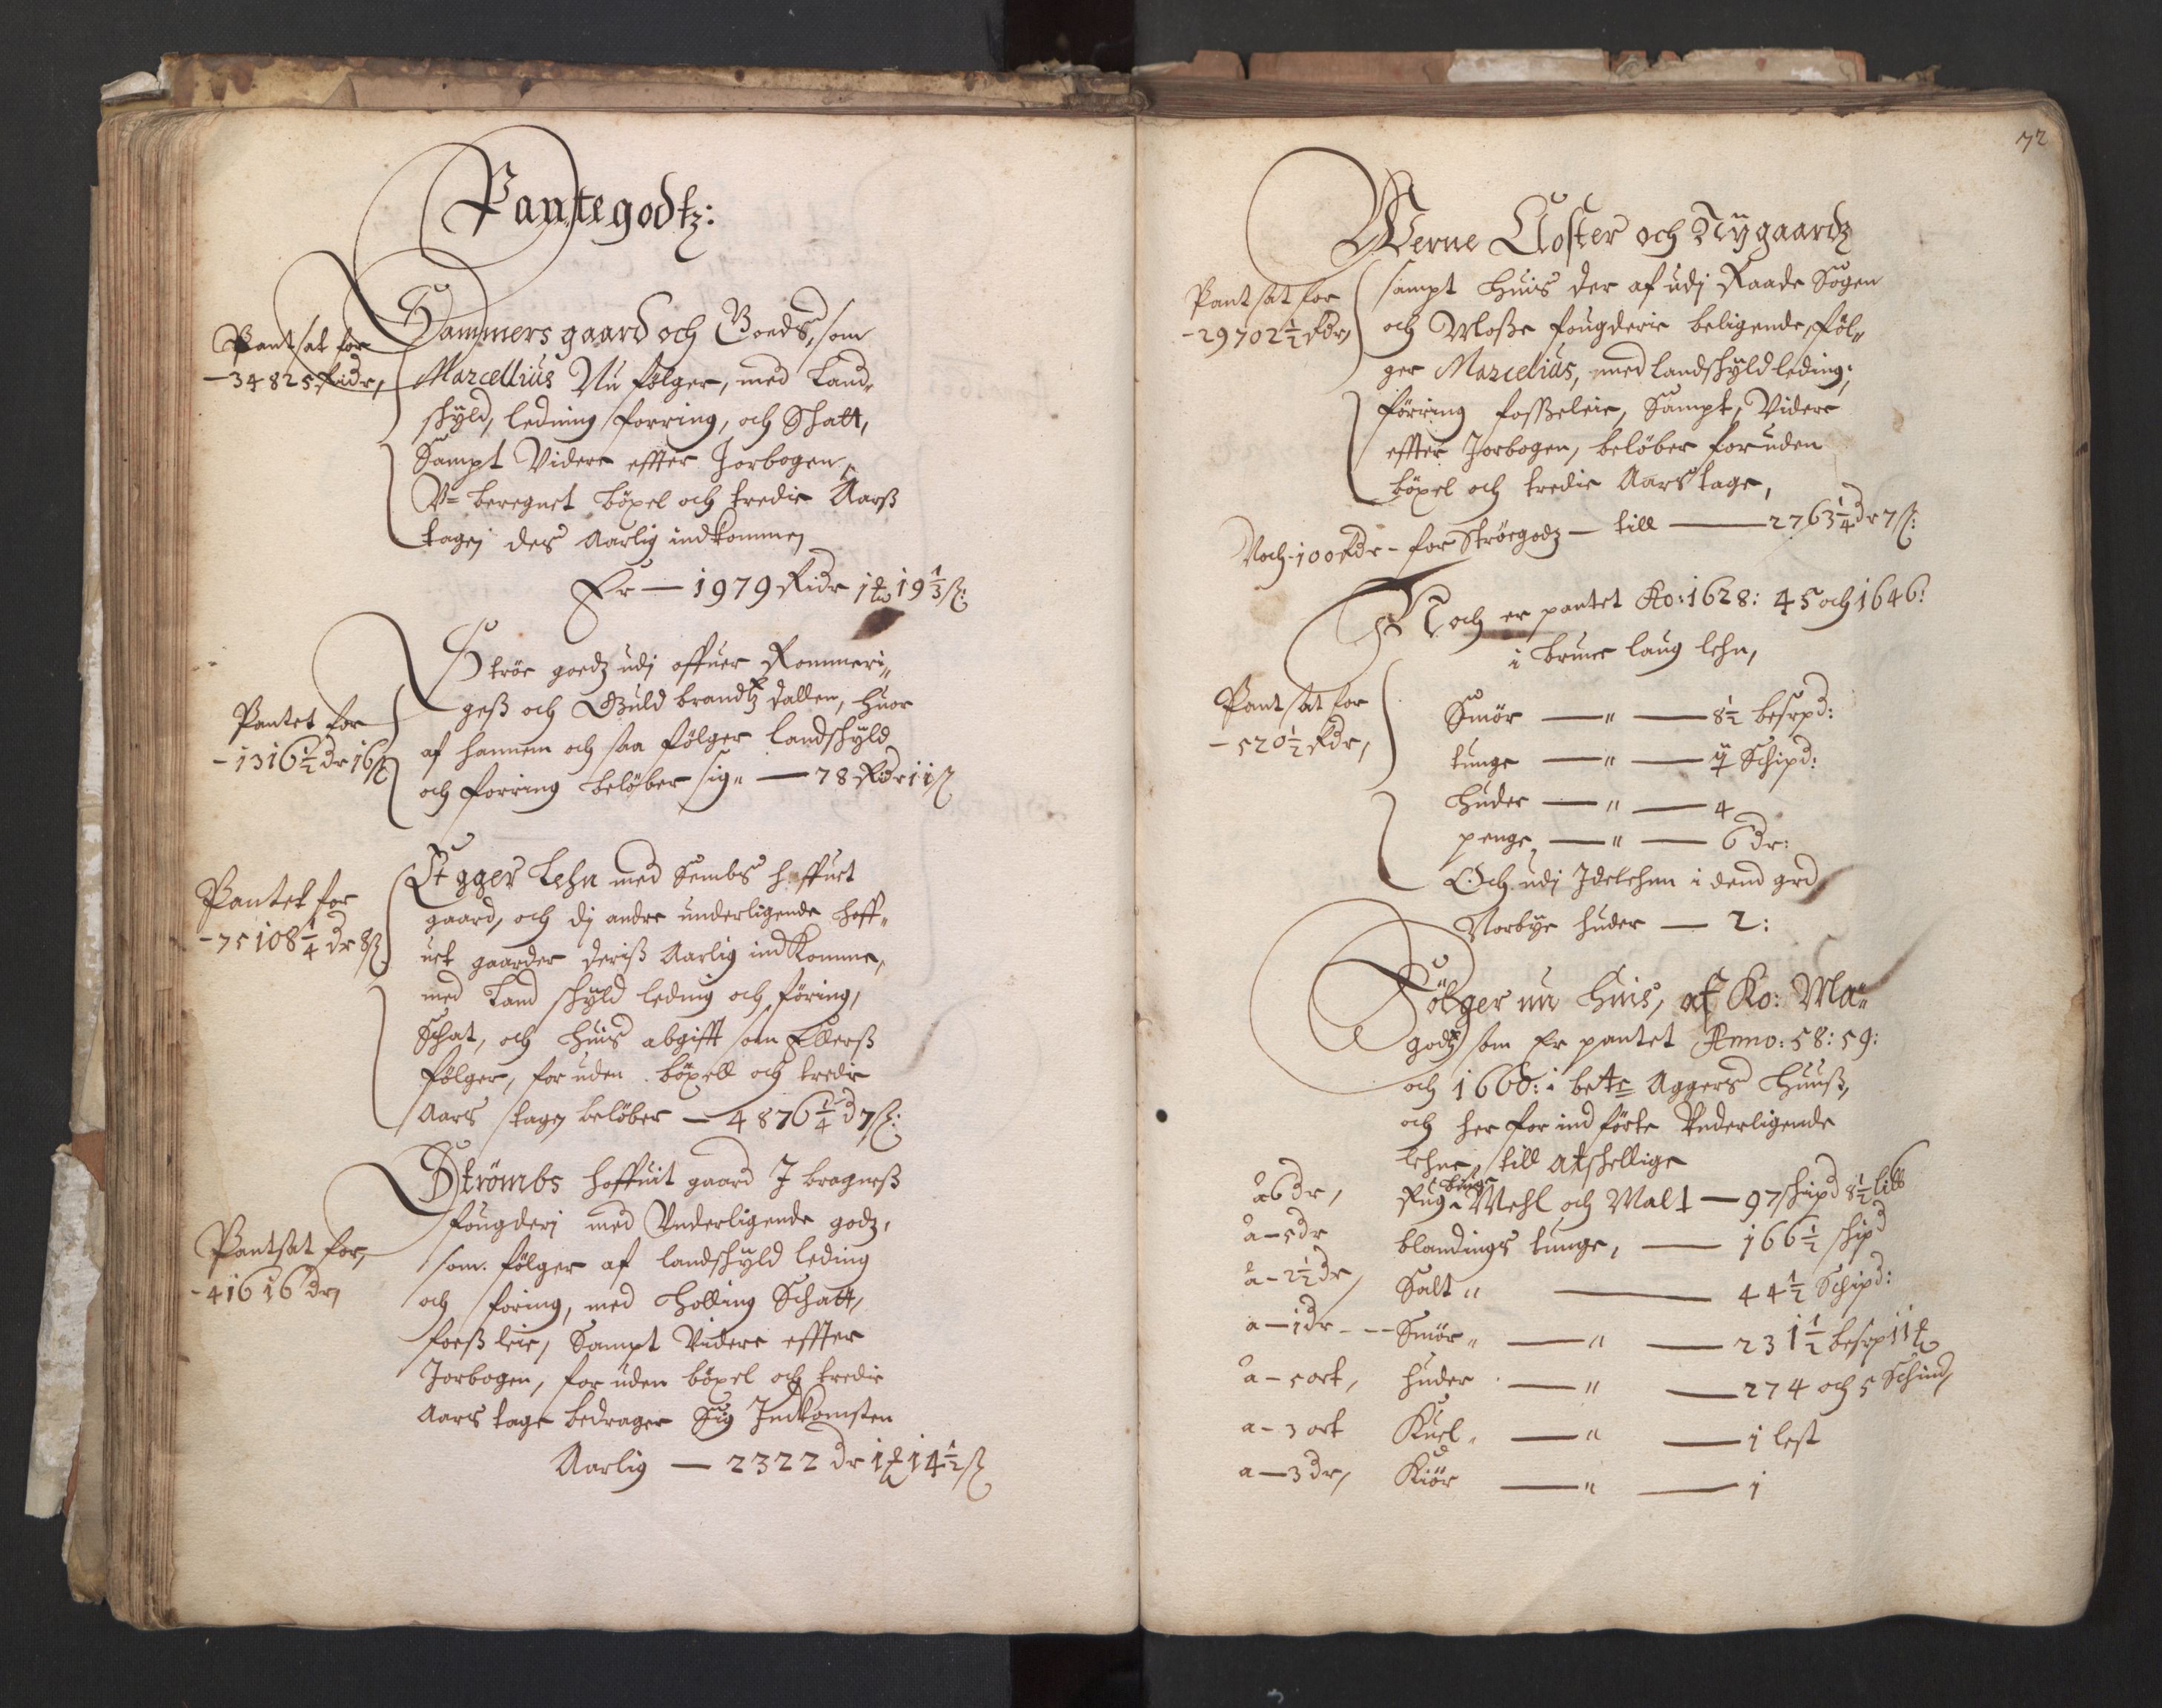 Pantegodtz:
Pantsat for
-34825 Ridr,
Hammers gaard och Goeds, som
Marcellius Nu følger, med Land-
skyld, ledning forring, och Schatt,
Sampt Videre effter Jorbogen,
V- beregnet böxel och tredie Aarß
tage, des Aarlig indkommen
Er — 1979 Ridr 1 19 1/3 ß:
Pantet for
-1316 1/2 dr 16 ß
Ströe goedz udj offuer Rommeri-
geß och Guld brandtz dallen, huor
af hannem och saa følger landskyld
och forring beløber sig — 78 Rdr 11 ß
Pantet for
-75108 1/4 dr 8 ß
Egger Lehn med Sembs hoffuet
gaard, och dj andre underligende hoff-
uet gaarder deriß Aarlig indkomme,
med Land skyld leding och føring,
Schat, och huis abgifft som Ellerß
følger, for uden böxell och tredie
Aars tage, beløber — 4876 1/4 d 7 ß:
Pantsat for,
-41616 dr,
Strömbs hoffuit gaard J bragneß
fougderj med Underligende godz,
som følger af landskyld leding
och foring, med holling Schatt,
foeß leie, Sampt Videre effter
Jorbogen, for uden böxel och tredie
Aars tage bedrager Sig Indkomsten
Aarlig — 2322 dr 1 14 1/2 ß
72
Werne Closter och Nygaardz
Pantsat for
-29702 1/2 Rdr,
sampt huis der af udj Raade Sogen
och Moße fougderie beligende, føl-
ger Marcelius, med landskyld leding,
förring foßeleie, Sampt, Videre
effter Jorbogen, beløber foruden
böxel och tredie Aars tage,
Noch-100 Rdr - for Ströegodz — till — 2763 1/4 dr 7 ß:
Noch er pantet Ao: 1628: 45 och 1646:
i laug lehn,
Pantsat for
-520 1/2 Rdr,
Smör — " — 8 1/2 besrpd:
tunge — " — Schipd:
huder — " — 4
penge, — " — 6 dr:
Och udj Idelehnn i dend grd
Norbye huder — 2:
Følger nu huis, af Ko: Ma:
godtz som Er pantet Anno: 58: 59:
och 1660: i be Aggers huuß,
och her for ind førte Underligende
lehne, till Atskellige
à 6 dr, Rug, biug, Mehl och Malt — 97 skipd 8 1/2 lib
à - 5 dr blandings tunge, — 166 1/2 skipd
à - 2 1/2 dr, Salt " — 44 1/2 Schipd:
a - 1 dr - - Smör " — " — 231 1/2 besrp 11
à - 5 ort, huder — " — 274 och 5 Schind,
a - 3 ort Kuel " — " — 1 lest
a - 3 dr, Kiör — " — 1